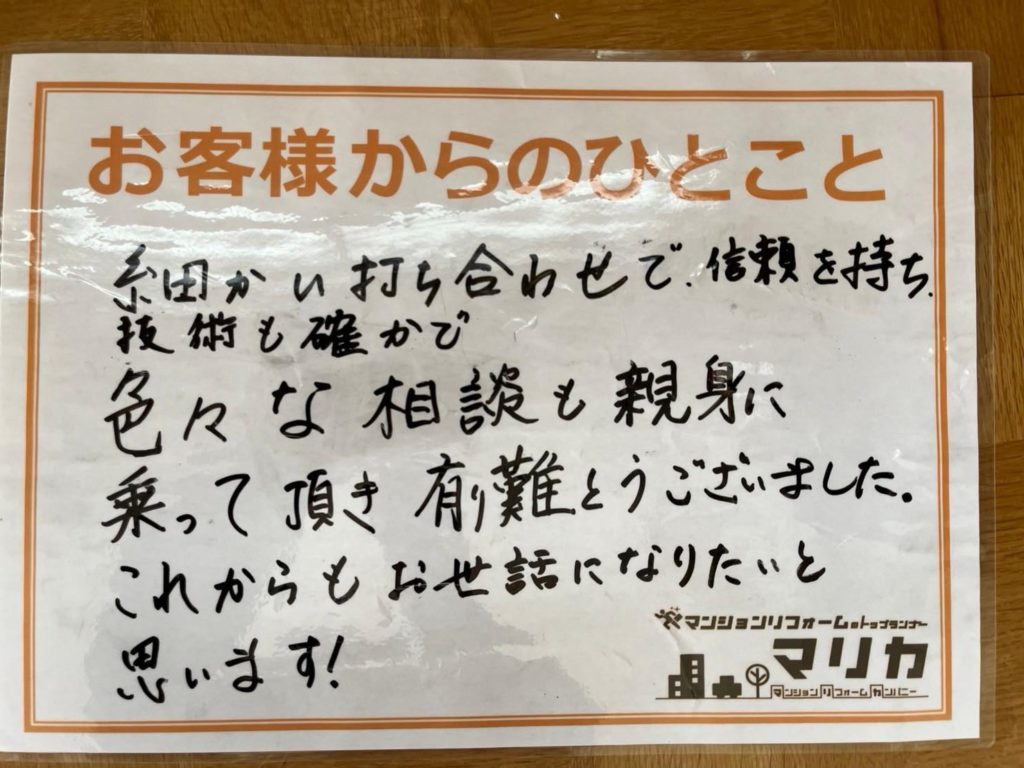 お客様からのひとこと
細かい打ち合わせで、信頼を持ち、
技術も確かで
色々な相談も親身に
乗って頂き有り難とうございました。
これからもお世話になりたいと
思います!
マンションリフォームのトップランナー
マリカ
マンションリフォームカンパニー